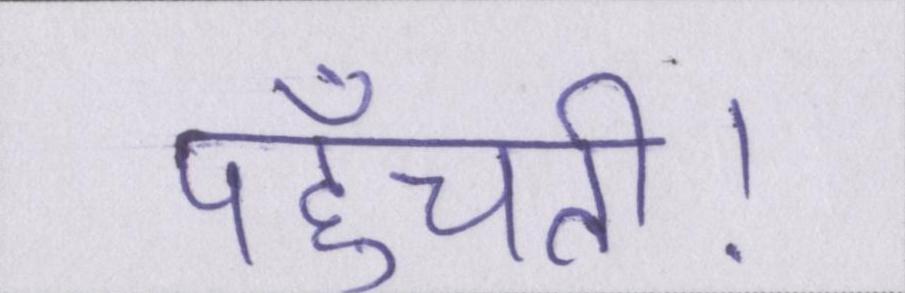 पहुँचती!